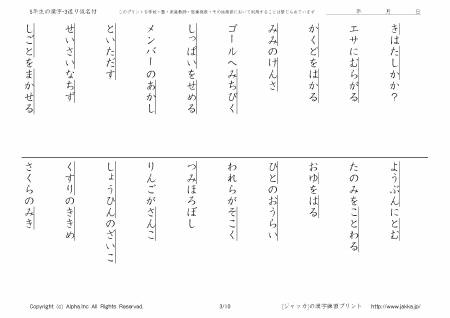 5年生の漢字-3送り仮名付
このプリントを学校・塾・家庭教師・医療施設・その他施設において利用することは禁じられています
年　月　日
きはたしかか？
エサにむらがる
かくどをはかる
みみのけんさ
ゴールへみちびく
しっぱいをせめる
メンバーのあかし
といただす
せいさいなちず
しごとをまかせる
ようぶんにとむ
たのみをことわる
おゆをはる
ひとのおうらい
われらがそこく
つみほろぼし
りんごがさんこ
しょうひんのざいこ
くすりのききめ
さくらのみき
Copyright (c) Alpha.Inc All Rights Reserved.
3/10
[ジャッカ]の漢字練習プリント　http://www.jakka.jp/